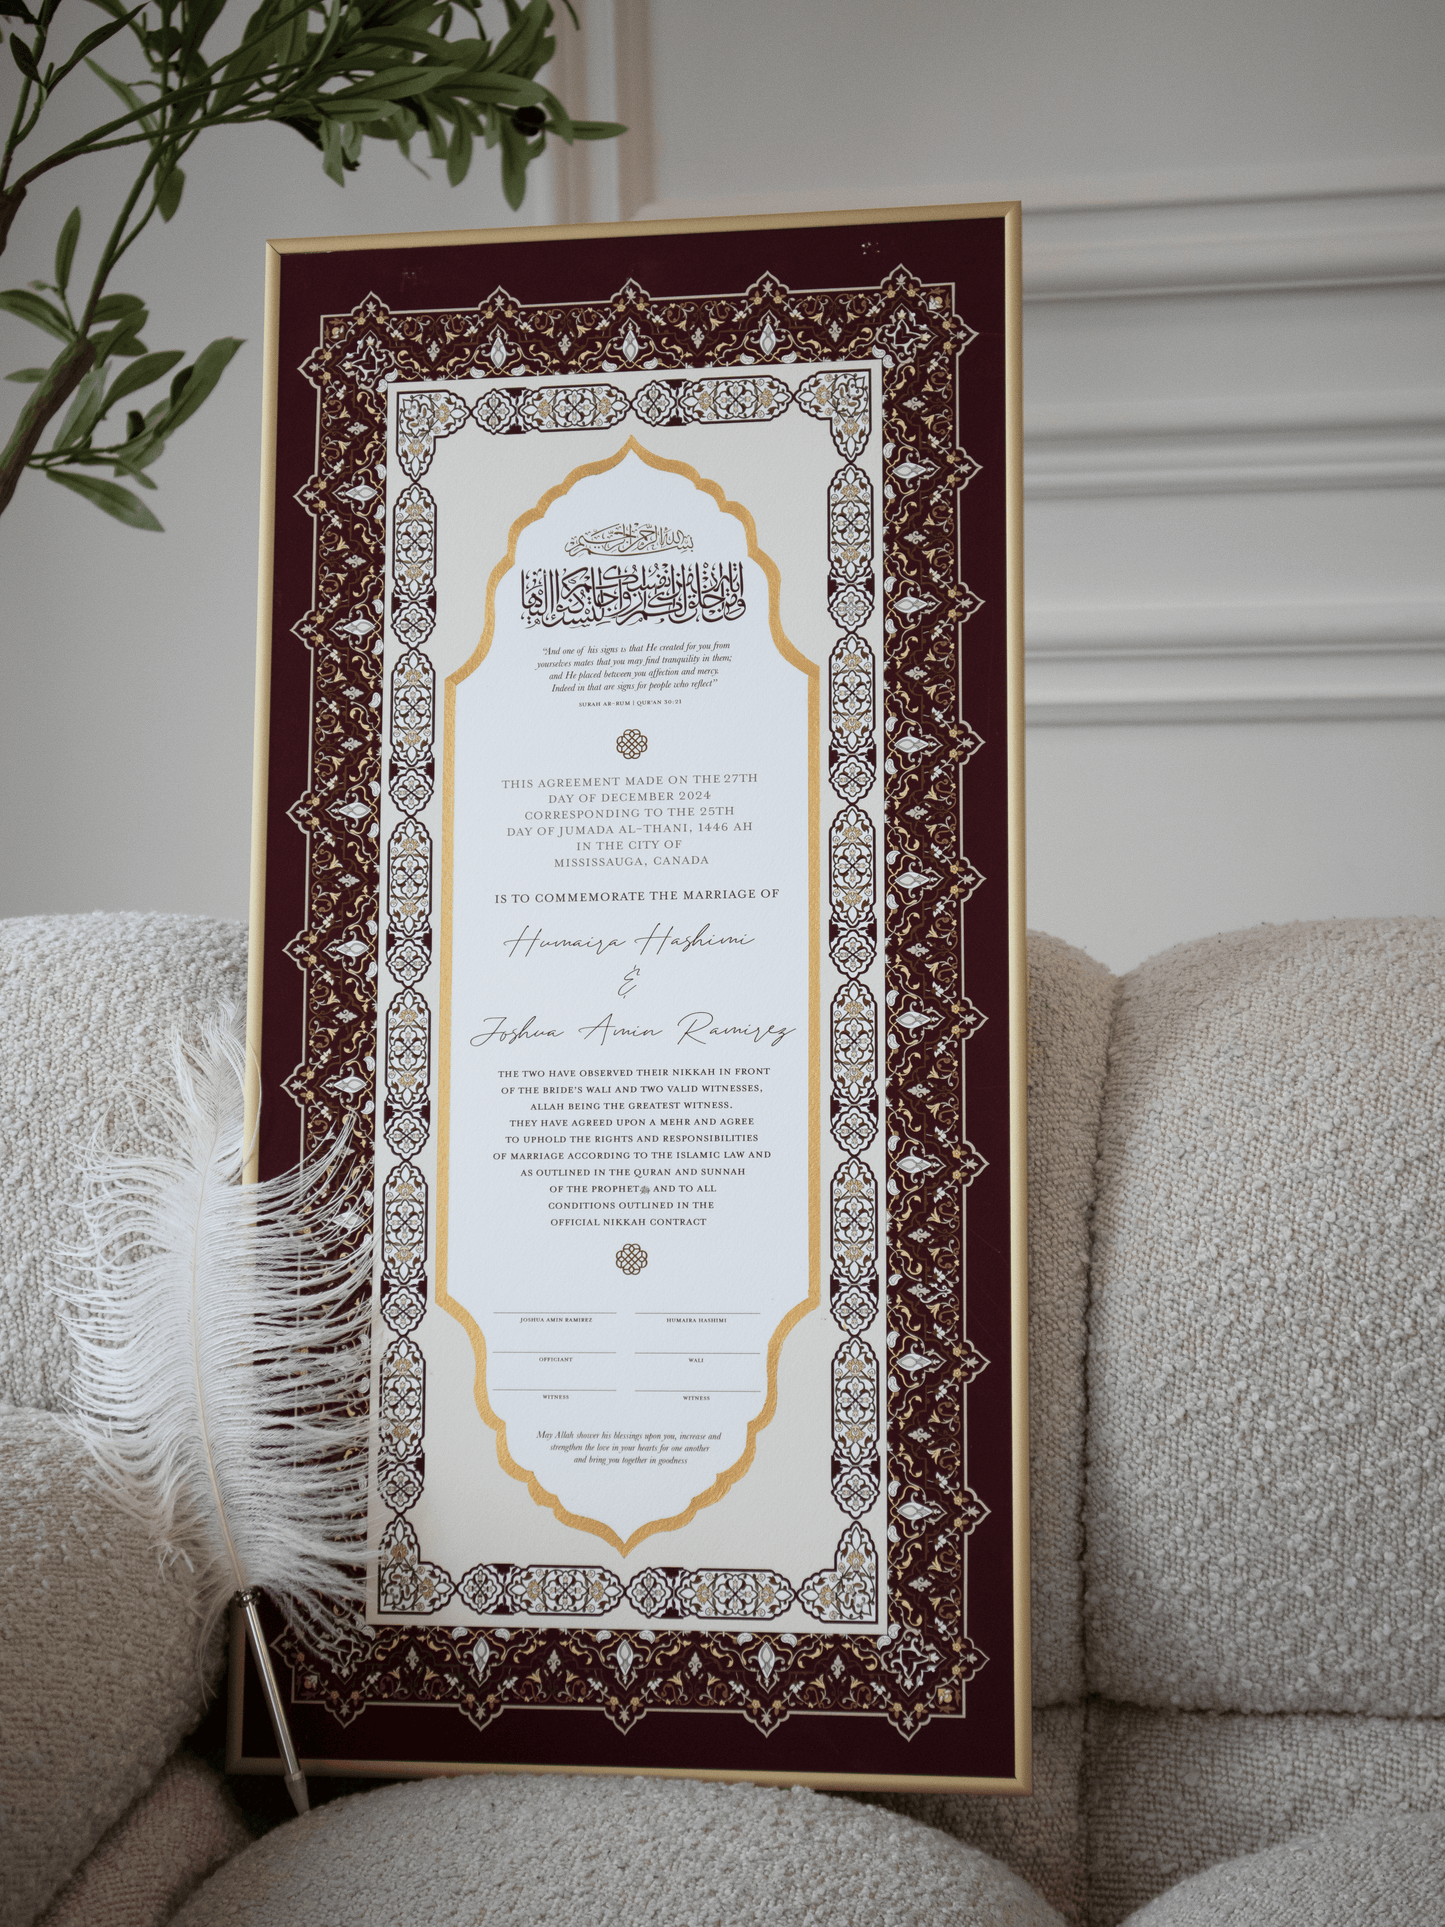 بسم الله الرحمن الرحيم
ومن آياته أن خلق لكم من أنفسكم أزواجا لتسكنوا إليها
"And one of his signs is that He created for you from
yourselves mates that you may find tranquility in them;
and He placed between you affection and mercy.
Indeed in that are signs for people who reflect"
SURAH AR-RUM | QUR'AN 30:21
THIS AGREEMENT MADE ON THE 27TH
DAY OF DECEMBER 2024
CORRESPONDING TO THE 25TH
DAY OF JUMADA AL-THANI, 1446 AH
IN THE CITY OF
MISSISSAUGA, CANADA
IS TO COMMEMORATE THE MARRIAGE OF
Humaira Hashimi
&
Joshua Amin Ramirez
THE TWO HAVE OBSERVED THEIR NIKKAH IN FRONT
OF THE BRIDE'S WALI AND TWO VALID WITNESSES,
ALLAH BEING THE GREATEST WITNESS.
THEY HAVE AGREED UPON A MEHR AND AGREE
TO UPHOLD THE RIGHTS AND RESPONSIBILITIES
OF MARRIAGE ACCORDING TO THE ISLAMIC LAW AND
AS OUTLINED IN THE QURAN AND SUNNAH
OF THE PROPHET ﷺ AND TO ALL
CONDITIONS OUTLINED IN THE
OFFICIAL NIKKAH CONTRACT
JOSHUA AMIN RAMIREZ HUMAIRA HASHIMI
OFFICIANT WALI
WITNESS WITNESS
May Allah shower his blessings upon you, increase and
strengthen the love in your hearts for one another
and bring you together in goodness